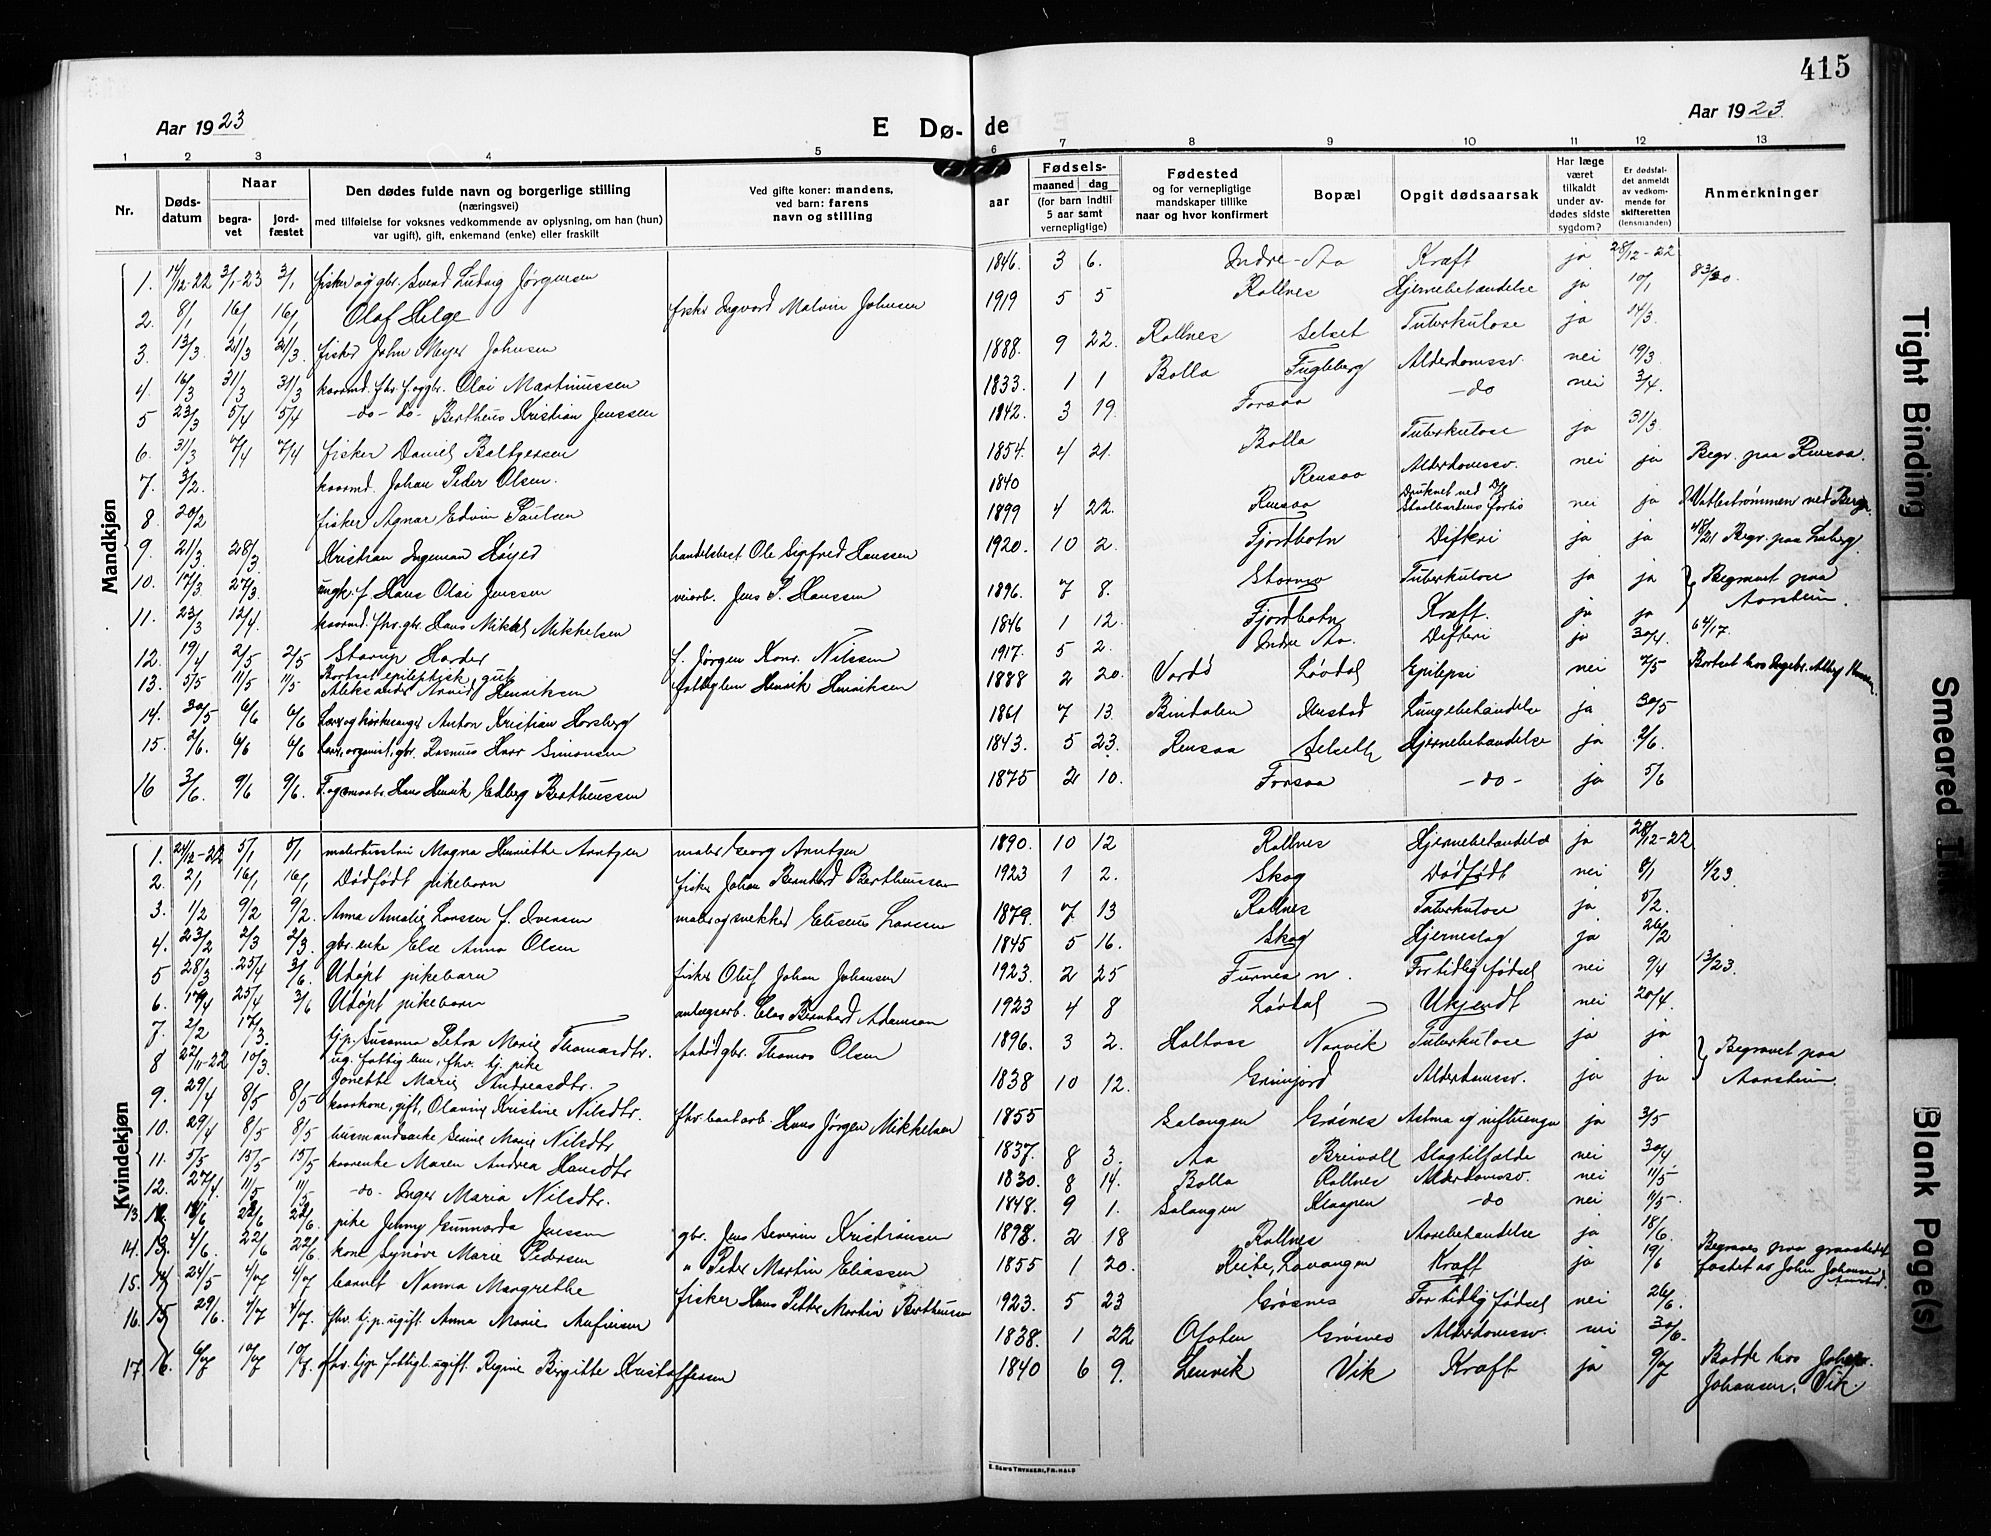 415
Aar 1923
E Dø- de
Aar 1923
1 2 3 4 5 6 7 8 9 10 11 12 13
Nr.
Døds-
datum
Naar
begra-
vet
jord-
fæstet
Den dødes fulde navn og borgerlige stilling
(næringsvei)
med tilføielse for voksnes vedkommende av oplysning, om han (hun)
var ugift), gift, enkemand (enke) eller fraskilt
Ved gifte koner: mandens,
ved barn: farens
navn og stilling
aar
Fødsels-
maaned dag
(for barn indtil
5 aar samt
vernepligtige)
Fødested
og for vernepligtige
mandskaper tillike
naar og hvor konfirmert
Bopæl
Opgit dødsaarsak
Har læge
været
tilkaldt
under av-
dødes sidste
sygdom?
Er dødsfal-
det anmeldt
av vedkom-
mende for
skifteretten
(lensmanden)
Anmerkninger
Mandkjøn
1. 14/12-22 3/1-23 3/1 fisker og gbr. Svend Ludvig Jørgensen 1846. 3 6. Indre-Aa Kræft ja 28/12-22
2. 8/1 16/1 16/1 Olaf Helge fisker Ingvard Malvin Johnsen 1919 5 5 Rollnes Hjernebetændelse ja 10/1
3. 13/3 21/3 21/3 fisker John Meyer Johnsen 1888. 9 22. Rollnes Selset Tuberkulose ja 14/3.
4. 16/3 31/3 31/3 kaarmd. fhv. f. og gbr. Olai Martinussen 1833. 1 1 Bolla Fugleberg Alderdomssv. nei 19/3
5 23/3 5/4 5/4 -do-do- Bertheus Kristian Jenssen 1842. 3 19. Forsaa -do nei 3/4.
6. 31/3 7/4 7/4 fisker Daniel Baltzersen 1854. 4 21. Bolla Tuberkulose ja 31/3
7. 3/2. kaarmd. Johan Peder Olsen. 1840 Rensaa Alderdomssv. nei ja Begr. paa Rensaa.
8 20/2 fisker Agnar Edvin Paulsen 1899 4 22. Rensaa Druknet ved nei ja
9. 21/3 28/3. Kristian Ingeman Høyer handelsbest. Ole Sigfred Hanssen 1920. 10 2. Fjordbotn Difteri ja ja Begr. paa
10. 17/3. 27/3. ungk. f. Hans Olai Jenssen veiarb. Jens P. Hanssen 1896. 7 8. Tuberkulose ja ja Begravet paa
11. 23/3 12/4. kaarmd. fhv. gbr. Hans Mikkel Mikkelsen 1846 1 12. Fjordbotn Kræft. ja ja Aarstein.
12. 19/4 2/5 2/5 Starup Harder f. Jørgen Konr. Nilssen 1917. 5 2. Indre Aa. Difteri ja 30/4.
Bortsat epileptisk gut
13. 5/5 11/5 11/5 Aleksander Arnid Henriksen fattiglem Henrik Henriksen 1888 2 20. Vardö Løvdal Epilepsi nei 7/5
14. 30/5 6/6 6/6 Anton Kristian Horsberg 1861 7 13. Bindalen Lungebetændelse ja 30/5
15. 2/6. 6/6 6/6 organist, gbr. Rasmus Simonsen 1843. 5 23. Rensaa Selseth Hjernebetændelse ja 2/6.
16 3/6. 9/6 9/6. Hans Henrik Edberg Bertheussen 1875 2 10. Forsaa -do- ja 5/6
Kvindekjøn
1. 24/12-22 5/1 5/1 Magna Henriette Arntzen maler Georg Arntzen 1890. 10 12 Rollnes Hjernebetændelse ja 28/12-22
2. 2/1 16/1 16/1 Dødfødt pikebarn fisker Johan Bernhard Bertheussen 1923 1 2. Skog Dødfødt nei 8/1 1/23
3. 1/2 9/2 9/2. Anna Amalie Larssen f. Iversen maler og snekker Eliseus Larssen 1879. 7 13 Rollnes Tuberkulose ja 5/2.
4. 23/2 2/3 2/3. gbr. enke Else Anna Olsen 1845 5 16. Skog Hjerneslag ja 26/2
5 28/3 25/4 3/6. Udøpt pikebarn fisker Oluf Johan Johansen 1923. 2 25 Furnes n. For tidlig fødsel nei 9/4 13/23.
6. 17/4 25/4 3/6 Udøpt pikebarn anlægsarb. Elas Bernhard Adamsen 1923 4 8 Løvdal Ukjendt nei 20/4.
7. 2/2 17/3. tj.p. Susanna Petra Marie Thomasdtr. Thomas Olsen 1896. 3 2. Narvik Tuberkulose ja ja Begravet paa
8 22/11-22 10/3. ug. fattiglem, fhv. tj. pike
Jonette Marie Andreasdtr. 1838 10 12. Alderdomssv. ja ja Aarstein.
9. 29/4 8/5 8/5 kaarkone, gift, Olavine Kristine Nilsdtr. fhv. baatarb. Hans Jørgen Mikkelsen 1855 Salangen Grøsnes Astma og influenza ja 3/5
10. 29/4 8/5 8/5 husmandsenke Marie Nilsdtr 1837. 8 3. Aa Breivoll Slagtilfælde nei 30/4
11. 5/5 15/5 15/5 kaarenke Maren Andrea Hansdtr 1830. 8 14. Bolla Rollnes Alderdomssv. nei 11/5
12. 27/4. 11/5 11/5 -do- Inger Maria Nilsdtr. 1848. 9 1. Salangen -do nei 11/5.
13. 22/6 22/6. pike Jenny Gunnarda Jenssen gbr. Jens Severin Kristiansen 1898. 2 18 Rollnes ja 18/6.
14. 13. 4/6. 22/6 22/6 kone Synøve Marie Pedersen " Peder Martin Eliassen 1855 1 20. Lavangen Kræft ja 19/6 Begraves paa
15. 14 24/5 4/7 4/7 Nanna Margrethe fisker Hans Petter Martin Bertheussen 1923. 5 23 Grøsnes For tidlig fødsel nei 26/6. av John Johansen,
16. 15 29/6. 4/7 4/7. fhv. tj.p. ugift. Anna Marie 1838. 1 22 Ofoten Grøsnes Alderdomssv. nei 30/6.
17. 16. 6/7 10/7 10/7. fhv. tjp. fattigl. ugift. Regine Birgitte Kristoffersen 1840 6 9. Lenvik Vik Kræft ja 9/7 Bodde hos
Johansen, Vik.
E. SEM'S TRYKKERI, FR.HALD
Tight Binding
Smeared Ink
Blank Page(s)